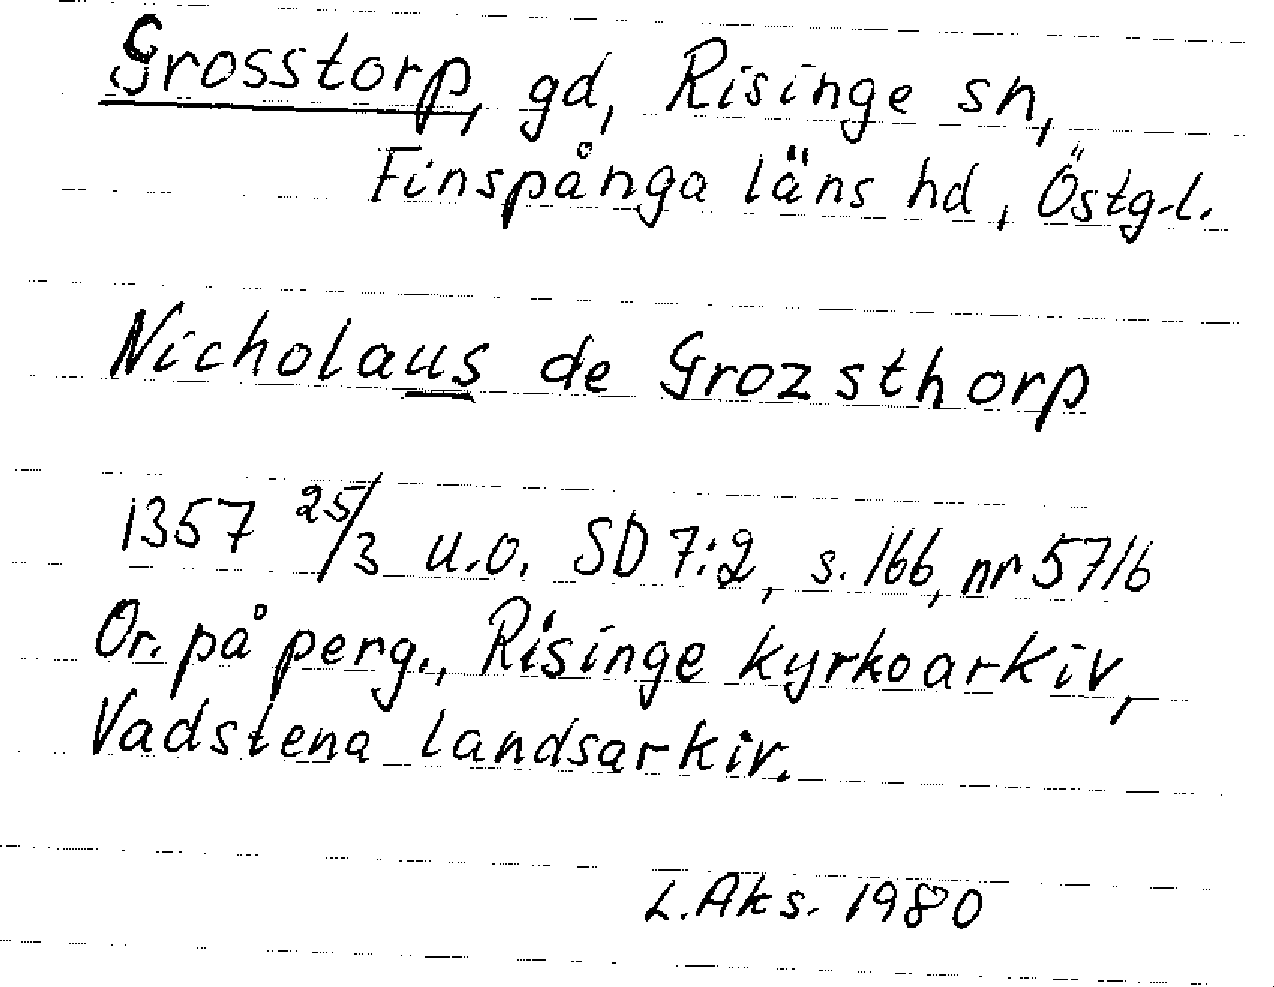 Grosstorp, gd, Risinge sn,
Finspånga läns hd, Östg.l.
Nicholaus de Grozsthorp
1357 25/3 u.o. SD 7:2, s. 166, nr 5716
Or. på perg., Risinge kyrkoarkiv,
Vadstena landsarkiv.
L. Aks. 1980